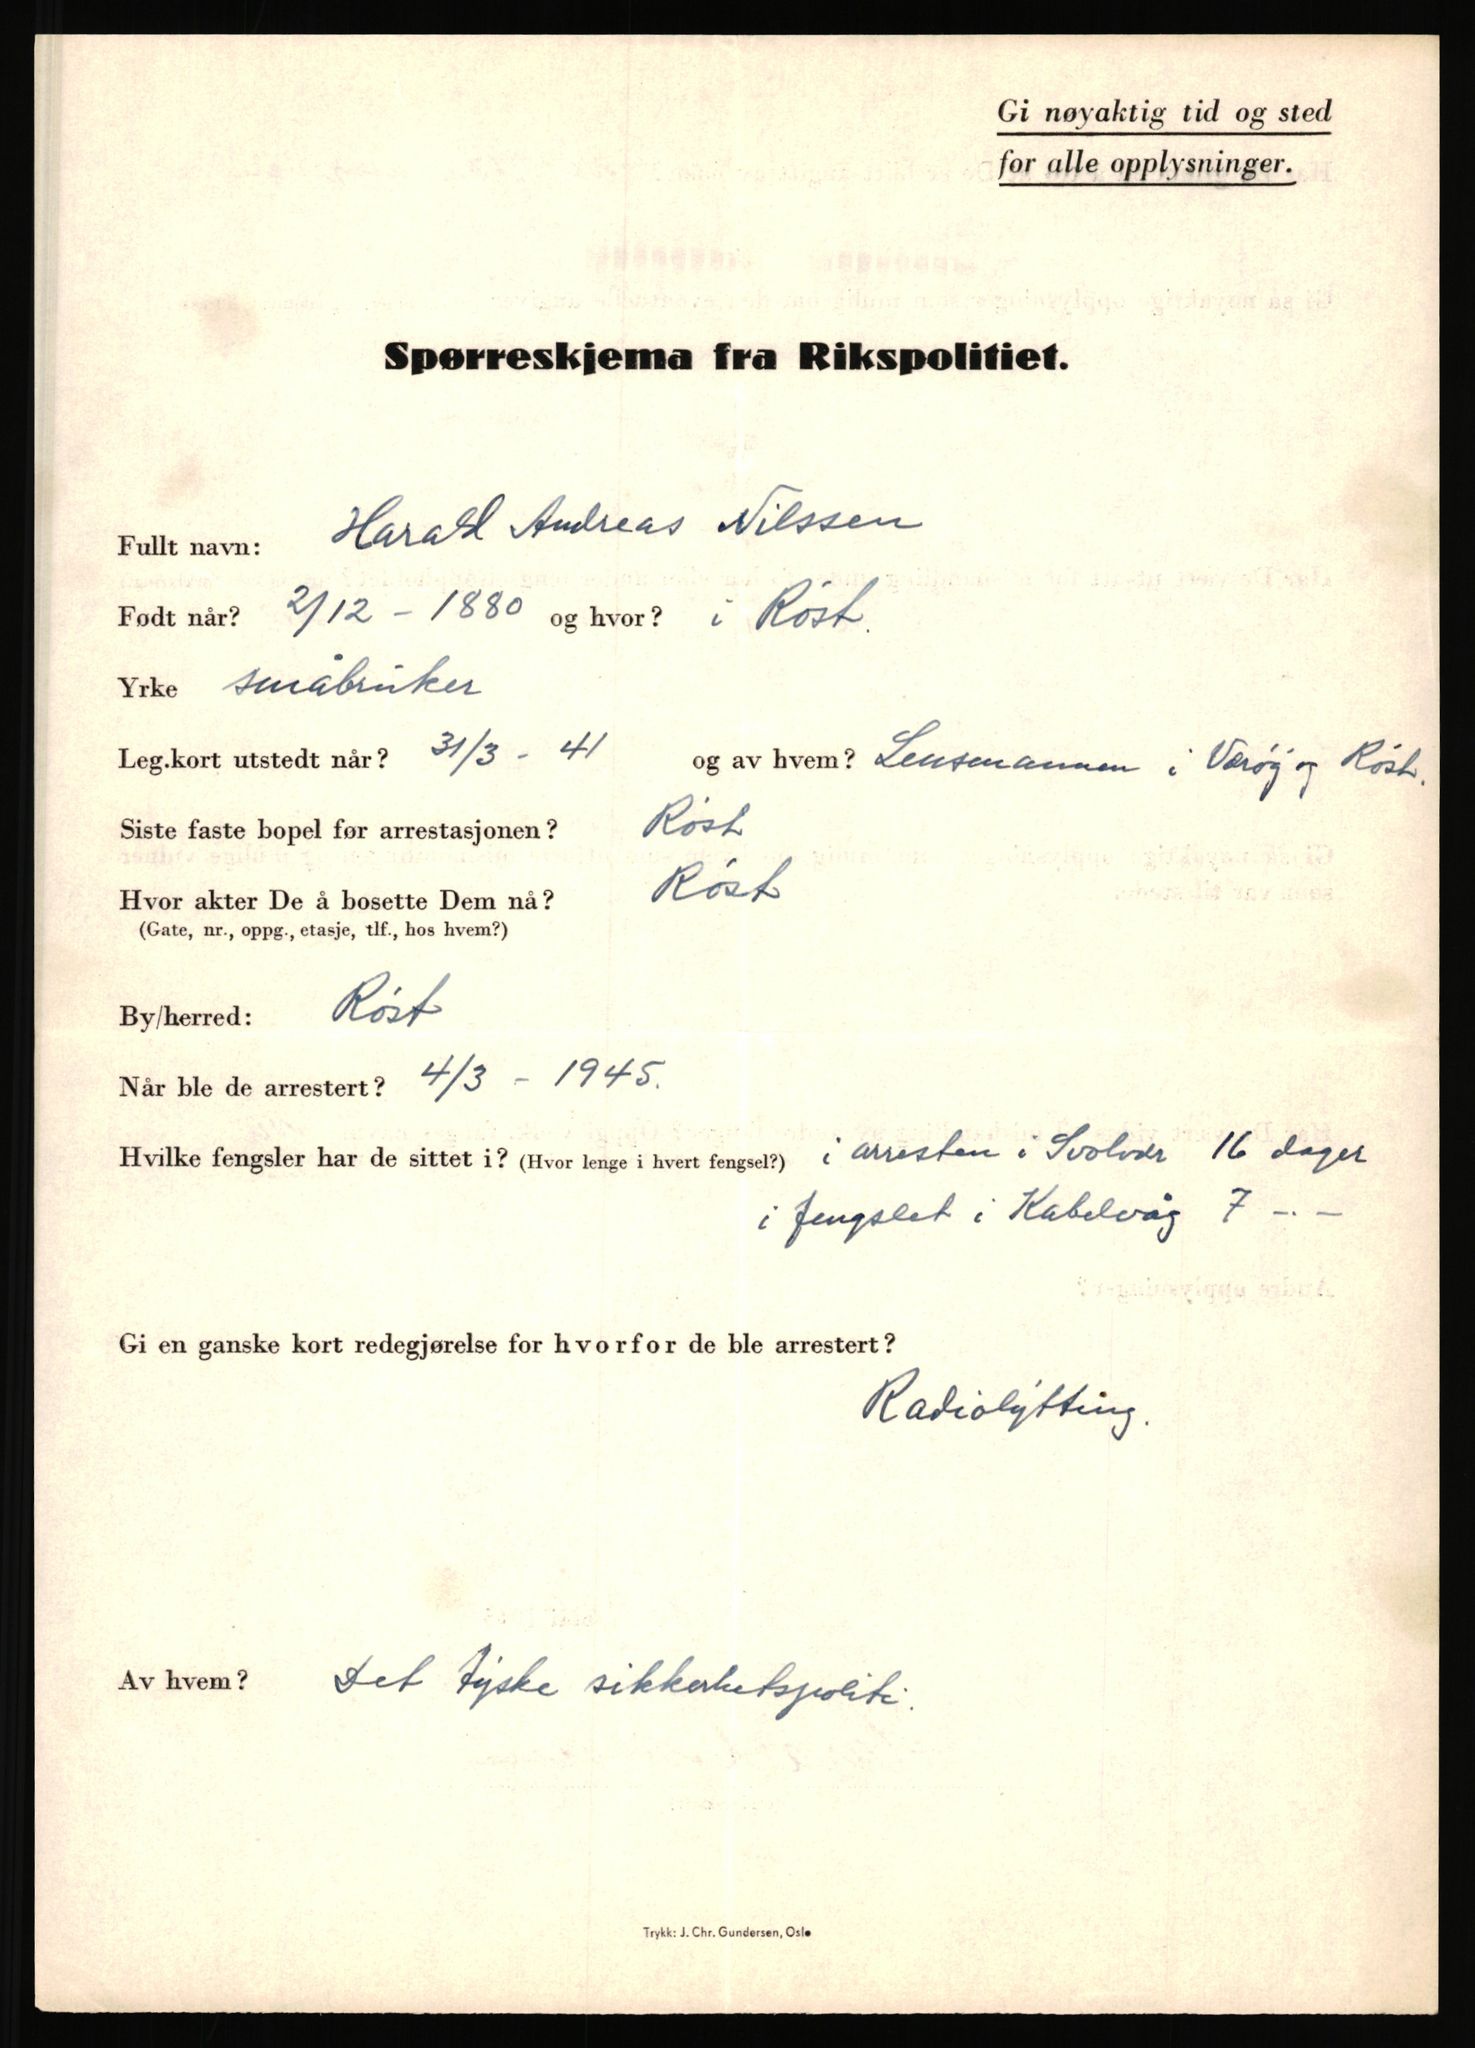 Gi nøyaktig tid og sted
for alle opplysninger.
Spørreskjema fra Rikspolitiet.
Fullt navn: Harald Andreas Nilssen
Født når? 2/12 - 1880 og hvor? i Røst.
Yrke småbruker
Leg.kort utstedt når? 31/3 - 41 og av hvem? Lensmannen i Værøy og Røst.
Siste faste bopel før arrestasjonen? Røst
Hvor akter De å bosette Dem nå? Røst
(Gate, nr., oppg., etasje, tlf., hos hvem?)
By/herred: Røst
Når ble de arrestert? 4/3 - 1945.
Hvilke fengsler har de sittet i? (Hvor lenge i hvert fengsel?) i arresten i Svolvær 16 dager
i fengslet i Kabelvåg 7 -.-
Gi en ganske kort redegjørelse for hvorfor de ble arrestert?
Radiolytting.
Av hvem? Det tyske sikkerhetspoliti.
Trykk: J. Chr. Gundersen, Oslo